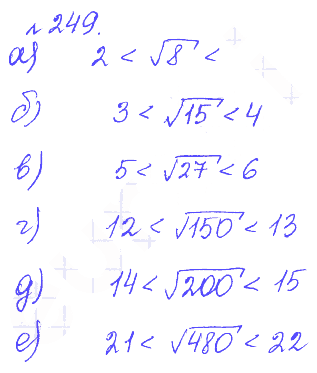 № 249.
а) 2 < √8 <
б) 3 < √15 < 4
в) 5 < √27 < 6
г) 12 < √150 < 13
д) 14 < √200 < 15
е) 21 < √480 < 22